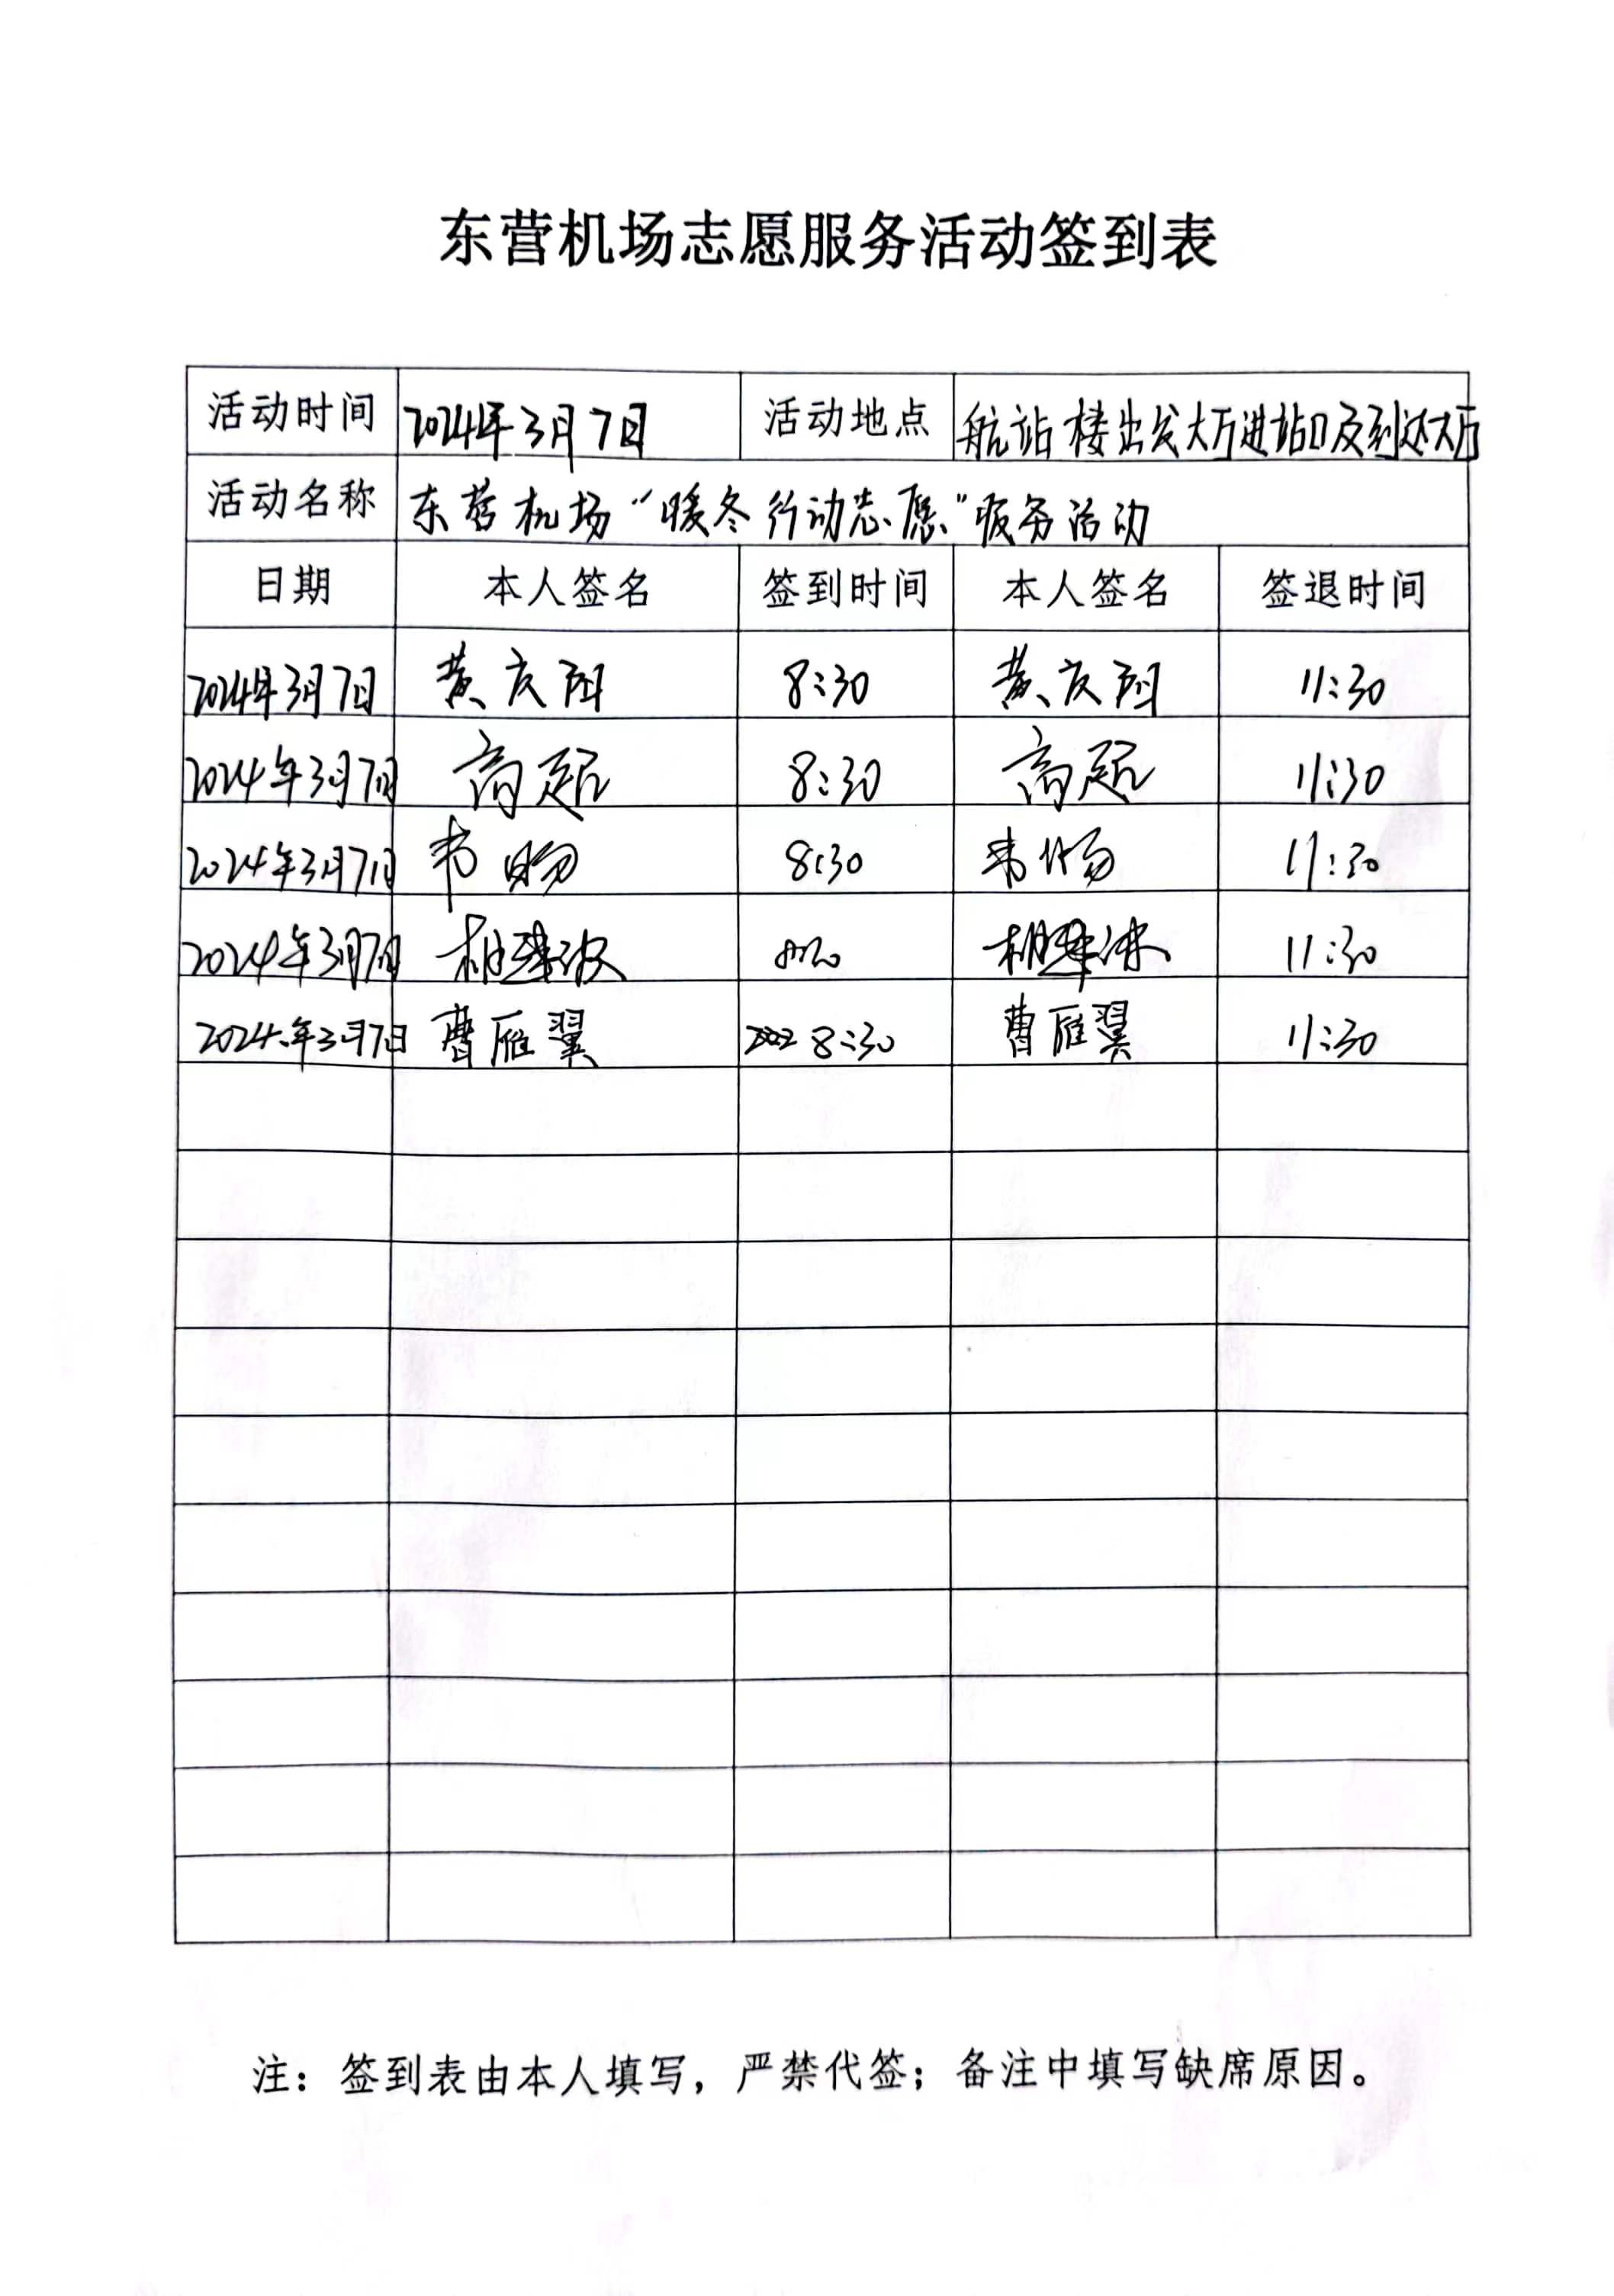 东营机场志愿服务活动签到表
活动时间 2024年3月7日 活动地点 航站楼出发大厅进站口及到达大厅
活动名称 东营机场“暖冬行动志愿”服务活动
日期 本人签名 签到时间 本人签名 签退时间
2024年3月7日 黄庆阳 8:30 黄庆阳 11:30
2024年3月7日 高超 8:30 高超 11:30
2024年3月7日 韦 8:30 韦 11:30
2024年3月7日 11:30
2024年3月7日 曹雁翼 8:30 曹雁翼 11:30
注：签到表由本人填写，严禁代签；备注中填写缺席原因。